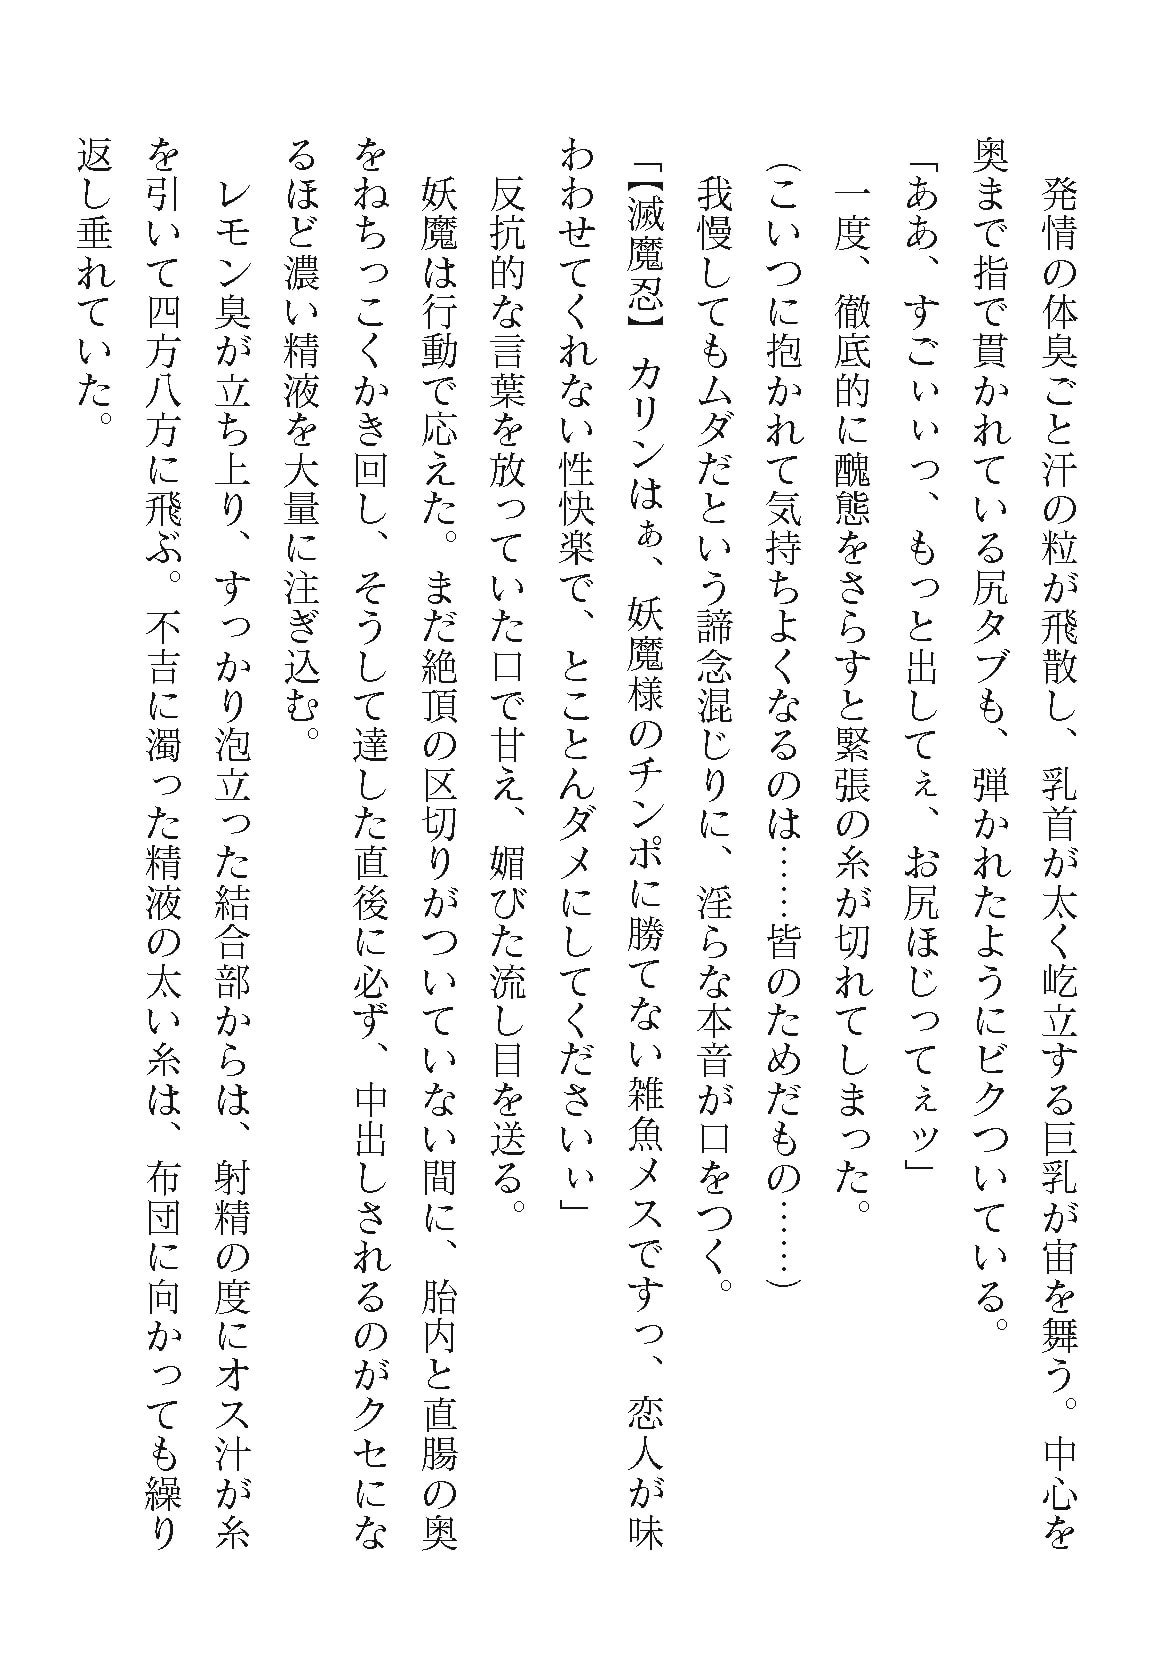 発情の体臭ごと汗の粒が飛散し、乳首が太く屹立する巨乳が宙を舞う。中心を
奥まで指で貫かれている尻タブも、弾かれたようにビクついている。
「ああ、すごぃぃっ、もっと出してぇ、お尻ほじってぇッ」
　一度、徹底的に醜態をさらすと緊張の糸が切れてしまった。
（こいつに抱かれて気持ちよくなるのは……皆のためだもの……）
　我慢してもムダだという諦念混じりに、淫らな本音が口をつく。
「【滅魔忍】　カリンはぁ、妖魔様のチンポに勝てない雑魚メスですっ、恋人が味
わわせてくれない性快楽で、とことんダメにしてくださいぃ」
　反抗的な言葉を放っていた口で甘え、媚びた流し目を送る。
　妖魔は行動で応えた。まだ絶頂の区切りがついていない間に、胎内と直腸の奥
をねちっこくかき回し、そうして達した直後に必ず、中出しされるのがクセにな
るほど濃い精液を大量に注ぎ込む。
　レモン臭が立ち上り、すっかり泡立った結合部からは、射精の度にオス汁が糸
を引いて四方八方に飛ぶ。不吉に濁った精液の太い糸は、布団に向かっても繰り
返し垂れていた。